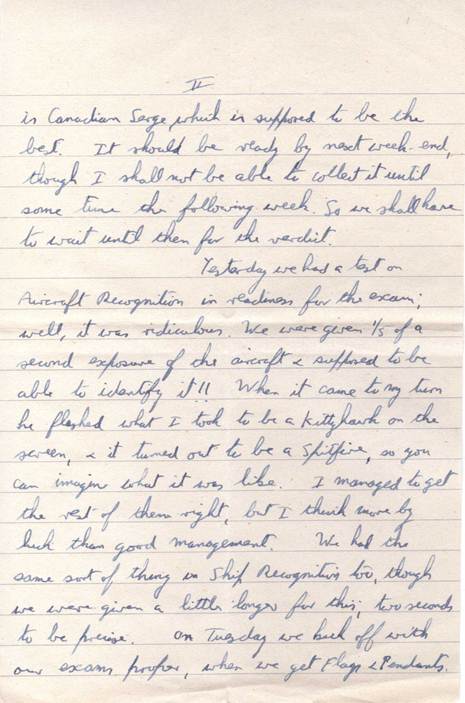 II
is Canadian Serge, which is supposed to be the
best. It should be ready by next week-end,
though I shall not be able to collect it until
some time the following week. So we shall have
to wait until then for the verdict.
Yesterday we had a test on
Aircraft Recognition in readiness for the exam;
well, it was ridiculous. We were given 1/5 of a
second exposure of the aircraft & supposed to be
able to identify it!! When it came to my turn
he flashed what I took to be a Kittyhawk on the
screen, & it turned out to be a Spitfire, so you
can imagine what it was like. I managed to get
the rest of them right, but I think more by
luck than good management. We had the
same sort of thing in Ship Recognition too, though
we were given a little longer for this; two seconds
to be precise. On Tuesday we kick off with
our exams proper, when we get Flags & Pendants.